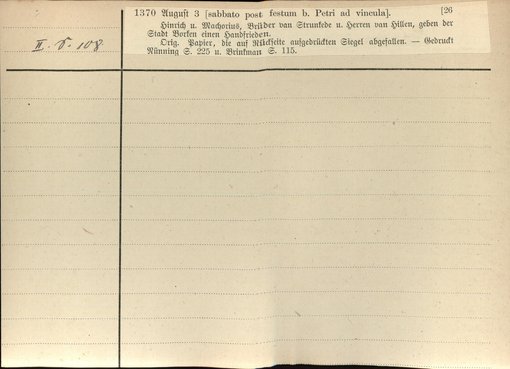 1370 August 3 [sabbato post festum b. Petri ad vincula]. [26
Hinrich u. Machorius, Brüder van Strunkede u. Herren van Hillen, geben der
Stadt Borken einen Handfrieden.
Orig. Papier, die auf Rückseite aufgedrückten Siegel abgefallen. — Gedruckt
Nünning S. 225 u. Brinkman S. 115.
II. S. 108